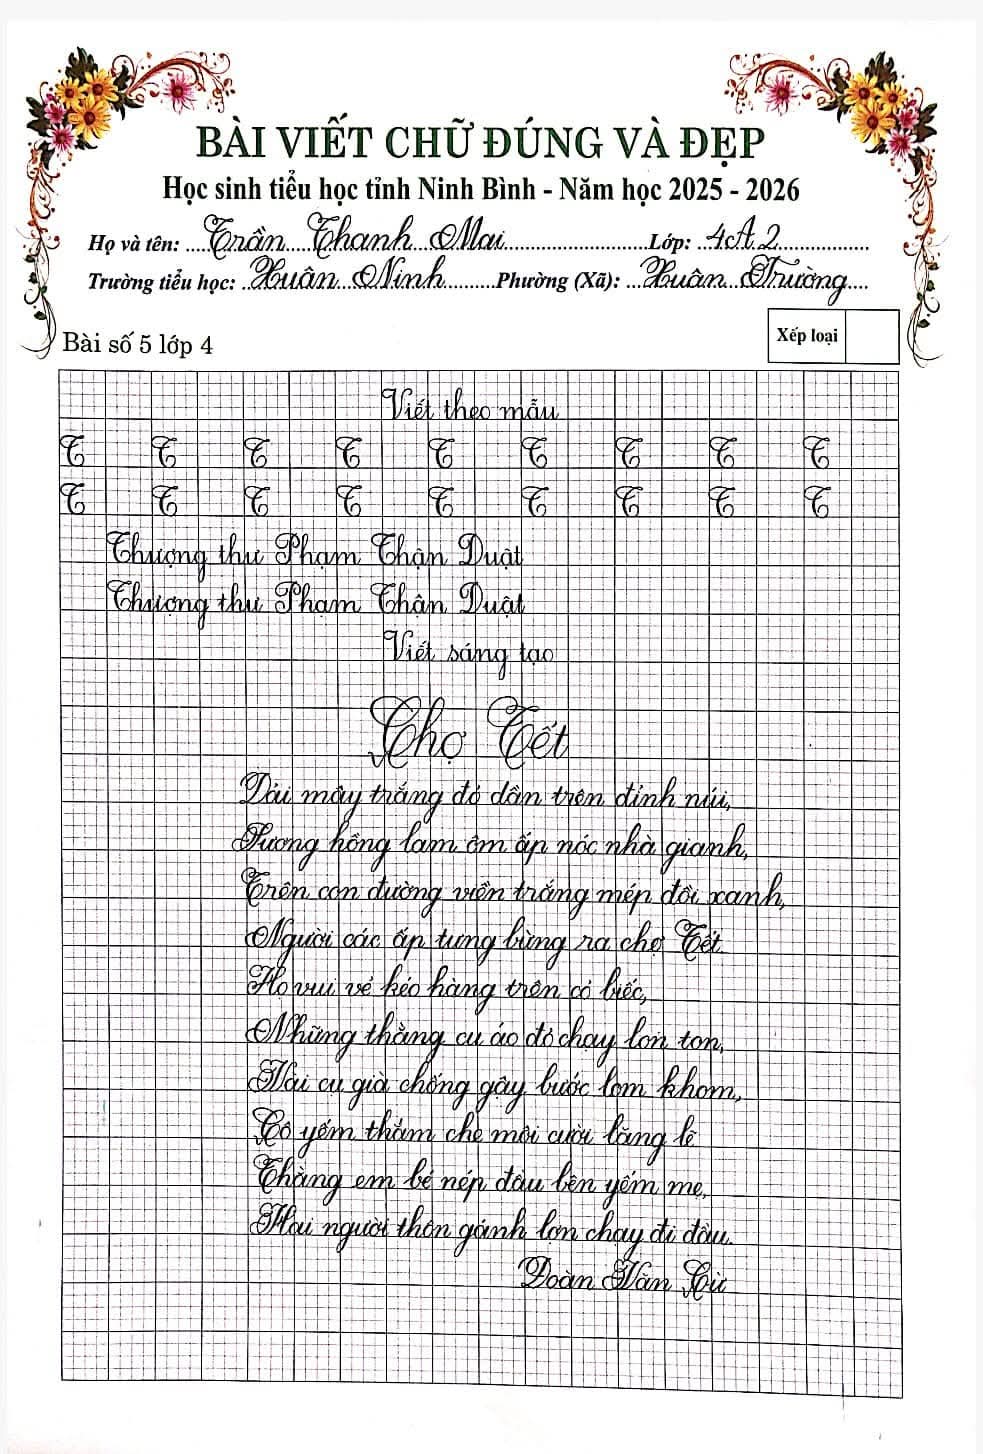 BÀI VIẾT CHỮ ĐÚNG VÀ ĐẸP
Học sinh tiểu học tỉnh Ninh Bình - Năm học 2025 - 2026
Họ và tên: ....Trần....Thanh..Mai..........................Lớp: ..4A2................
Trường tiểu học: ..Xuân...Ninh..........Phường (Xã): ...Xuân...Trường....
Xếp loại
Bài số 5 lớp 4
Viết theo mẫu
T T T T T T T T T
T T T T T T T T T
Thượng thư Phạm Thận Duật
Thượng thư Phạm Thận Duật
Viết sáng tạo
Chợ Tết
Dải mây trắng đỏ dần trên đỉnh núi,
Sương hồng lam ôm ấp nóc nhà gianh,
Trên con đường viền trắng mép đồi xanh,
Người các ấp tưng bừng ra chợ Tết.
Họ vui vẻ kéo hàng trên cỏ biếc,
Những thằng cu áo đỏ chạy lon ton,
Vài cụ già chống gậy bước lom khom,
Cô yếm thắm che môi cười lặng lẽ
Thằng em bé nép đầu bên yếm mẹ,
Hai người thôn gánh lợn chạy đi đầu.
Đoàn Văn Cừ